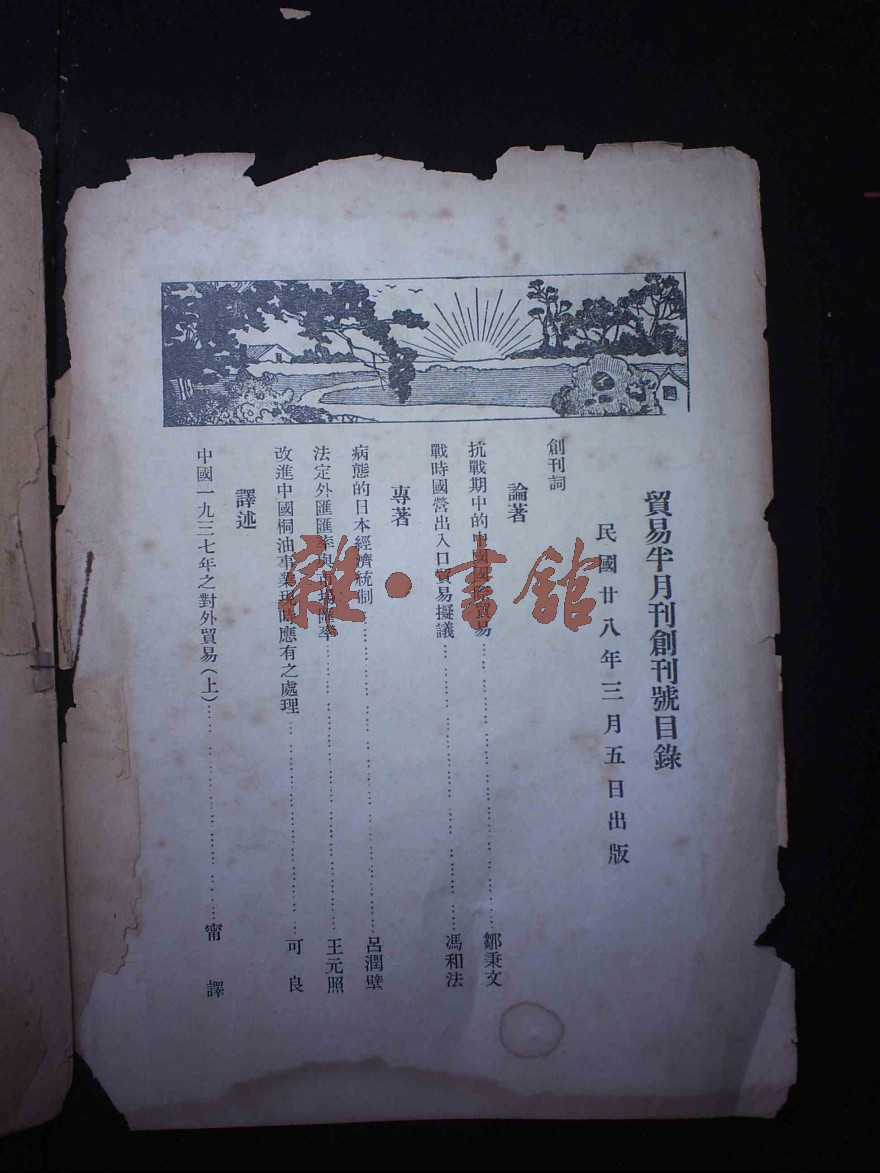 貿易半月刊創刊號目錄
民國廿八年三月五日出版
創刊詞
論著
抗戰期中的中國國際貿易 鄒秉文
戰時國營出入口貿易擬議 馮和法
專著
病態的日本經濟統制 呂潤壁
法定外匯匯率與市場匯率 王元照
改進中國桐油事業現時應有之處理 可良
譯述
中國一九三七年之對外貿易(上) 甯譯
雜·書館